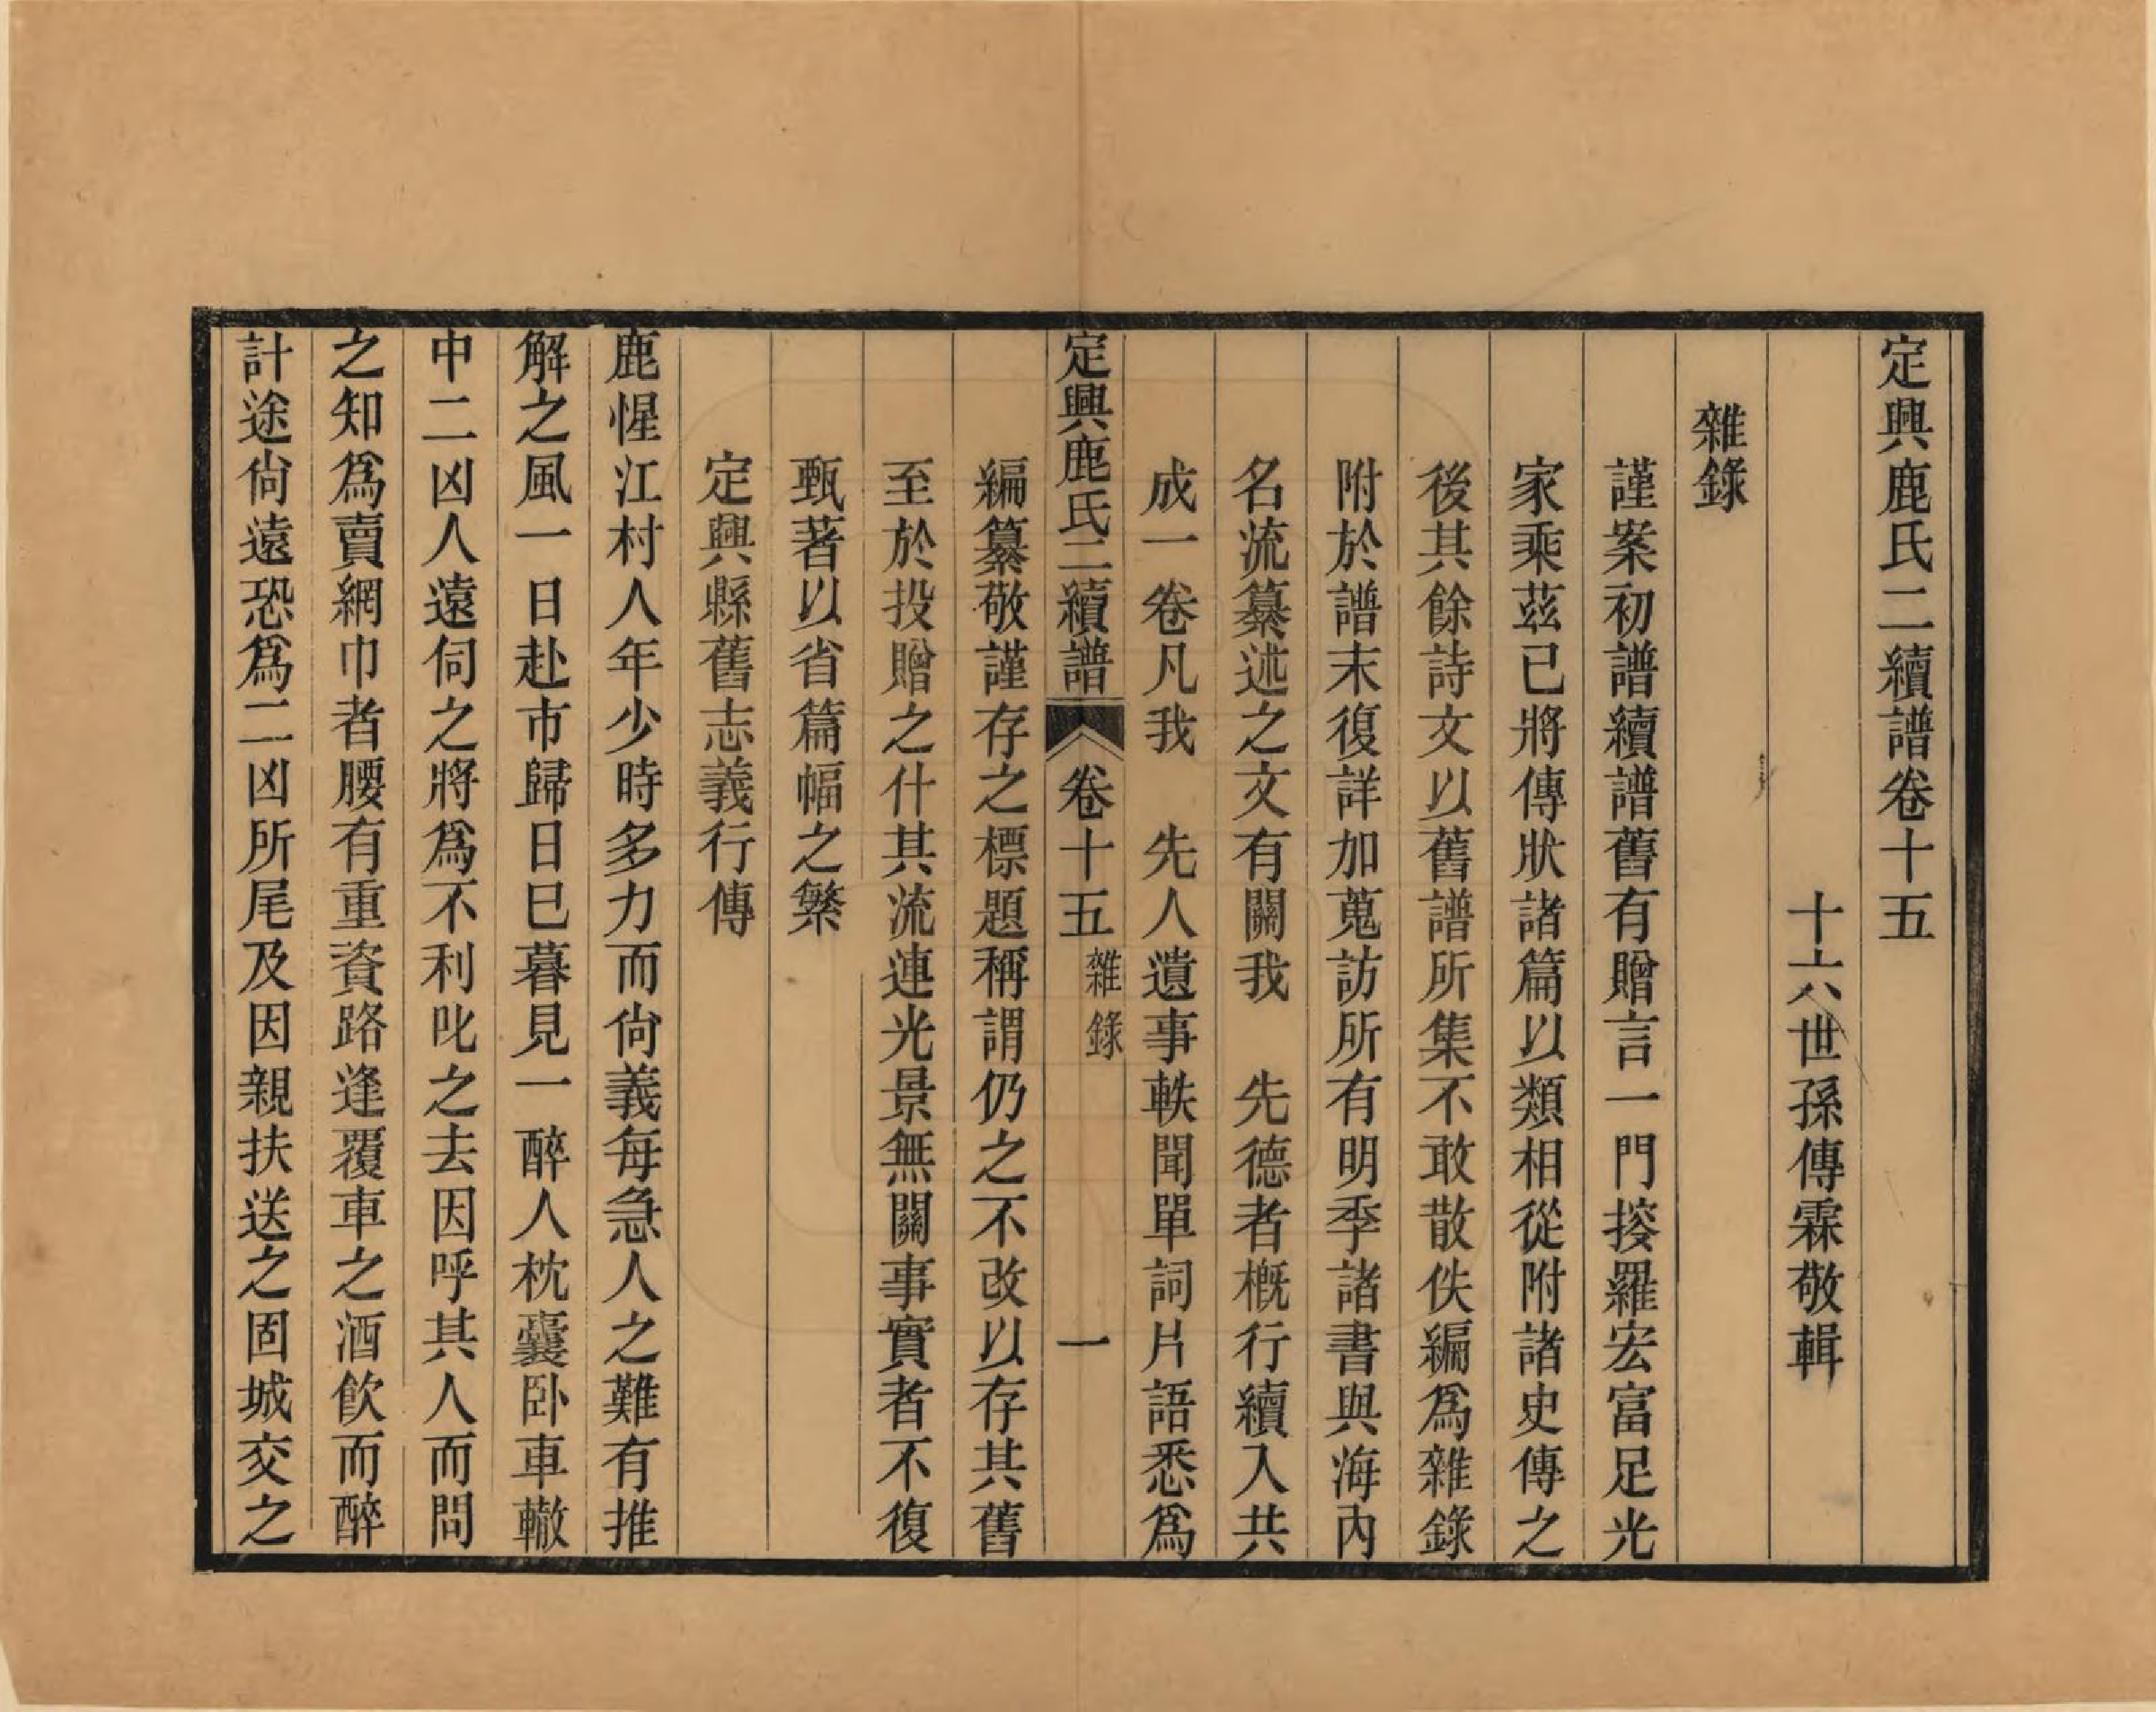 定興鹿氏二續譜卷十五
十六世孫傳霖敬輯
雜錄
謹案初譜續譜舊有贈言一門搜羅宏富足光
家乘茲已將傳狀諸篇以類相從附諸史傳之
後其餘詩文以舊譜所集不敢散佚編爲雜錄
附於譜末復詳加蒐訪所有明季諸書與海內
名流纂述之文有關我　先德者槪行續入共
成一卷凡我　先人遺事軼聞單詞片語悉爲
定興鹿氏二續譜　卷十五　雜錄　一
編纂敬謹存之標題稱謂仍之不改以存其舊
至於投贈之什其流連光景無關事實者不復
甄著以省篇幅之繁
定興縣舊志義行傳
鹿惺江村人年少時多力而尙義每急人之難有推
解之風一日赴市歸日巳暮見一醉人枕囊卧車轍
中二凶人遠伺之將爲不利叱之去因呼其人而問
之知爲賣網巾者腰有重資路逢覆車之酒飮而醉
計途尙遠恐爲二凶所尾及因親扶送之固城交之